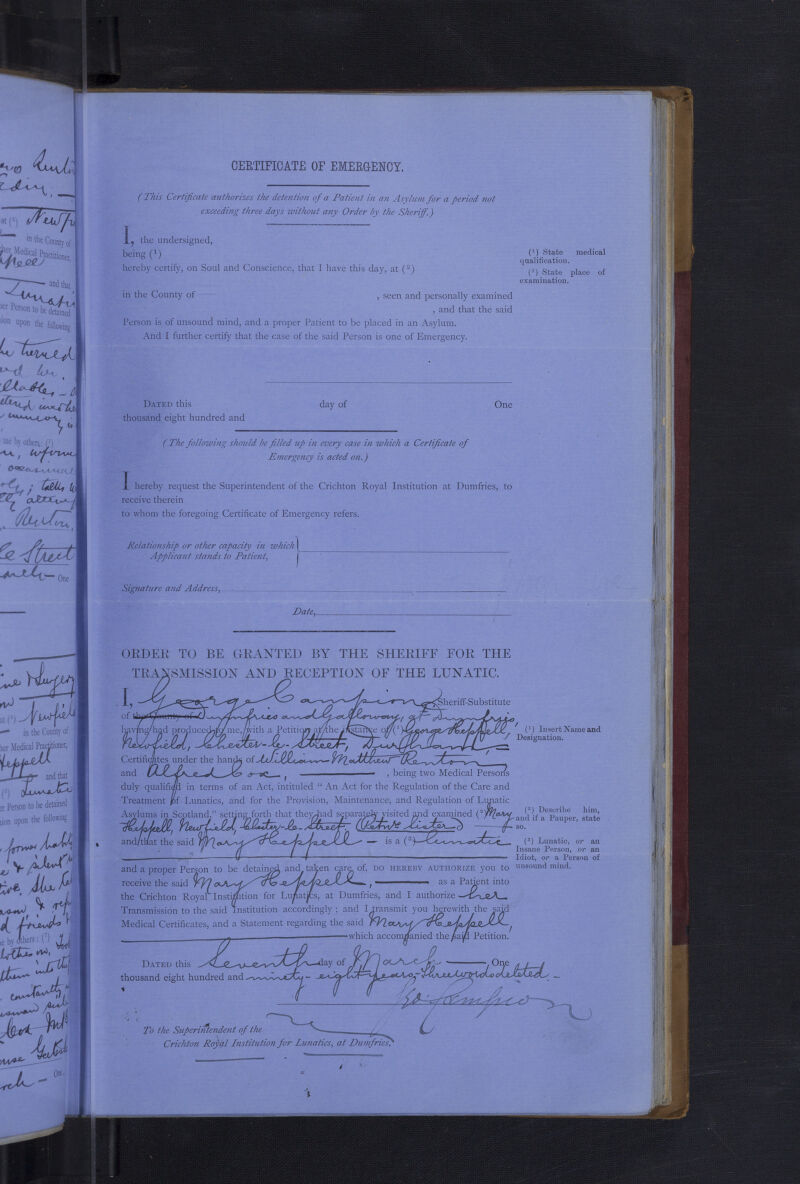 CERTIFICATE OF EMERGENCY.
(This Certificate authorizes the detention of a Patient in an Asylum for a period not
exceeding three days without any Order by the Sheriff.)
I, the undersigned,
being (1)
hereby certify, on Soul and Conscience, that I have this day, at (2)
in the County of , seen and personally examined
, and that the said
Person is of unsound mind, and a proper Patient to be placed in an Asylum.
And I further certify that the case of the said Person is one of Emergency.
(1) State medical
qualification.
(2) State place of
examination.
DATED this day of One
thousand eight hundred and
(The following should be filled up in every case in which a Certificate of
Emergency is acted on.)
I hereby request the Superintendent of the Crichton Royal Institution at Dumfries, to
receive therein
to whom the foregoing Certificate of Emergency refers.
Relationship or other capacity in which
Applicant stands to Patient,
Signature and Address,
Date,
ORDER TO BE GRANTED BY THE SHERIFF FOR THE
TRANSMISSION AND RECEPTION OF THE LUNATIC.
I, George Campion, Sheriff-Substitute
of the County of Dumfries and Galloway, at Dumfries,
having had produced to me, with a Petition at the instance of (1) George Heppell,
Newfield, Chester-le-Street, Durham,
Certificates under the hands of William Matthew Renton
and Alfred Cox, , being two Medical Persons
duly qualified in terms of an Act, intituled "An Act for the Regulation of the Care and
Treatment of Lunatics, and for the Provision, Maintenance, and Regulation of Lunatic
Asylums in Scotland," setting forth that they had separately visited and examined (2) Mary
Heppell, Newfield, Chester-le-Street, (Petnrs sister)
and that the said Mary Heppell is a (3) Lunatic
and a proper Person to be detained and taken care of, DO HEREBY AUTHORIZE you to
receive the said Mary Heppell, as a Patient into
the Crichton Royal Institution for Lunatics, at Dumfries, and I authorize her
Transmission to the said Institution accordingly; and I transmit you herewith the said
Medical Certificates, and a Statement regarding the said Mary Heppell,
which accompanied the said Petition.
(1) Insert Name and
Designation.
(2) Describe him,
and if a Pauper, state
so.
(3) Lunatic, or an
Insane Person, or an
Idiot, or a Person of
unsound mind.
DATED this Seventh day of March, One
thousand eight hundred and ninety-eight years, three words deleted.
Geo Campion
To the Superintendent of the
Crichton Royal Institution for Lunatics, at Dumfries.